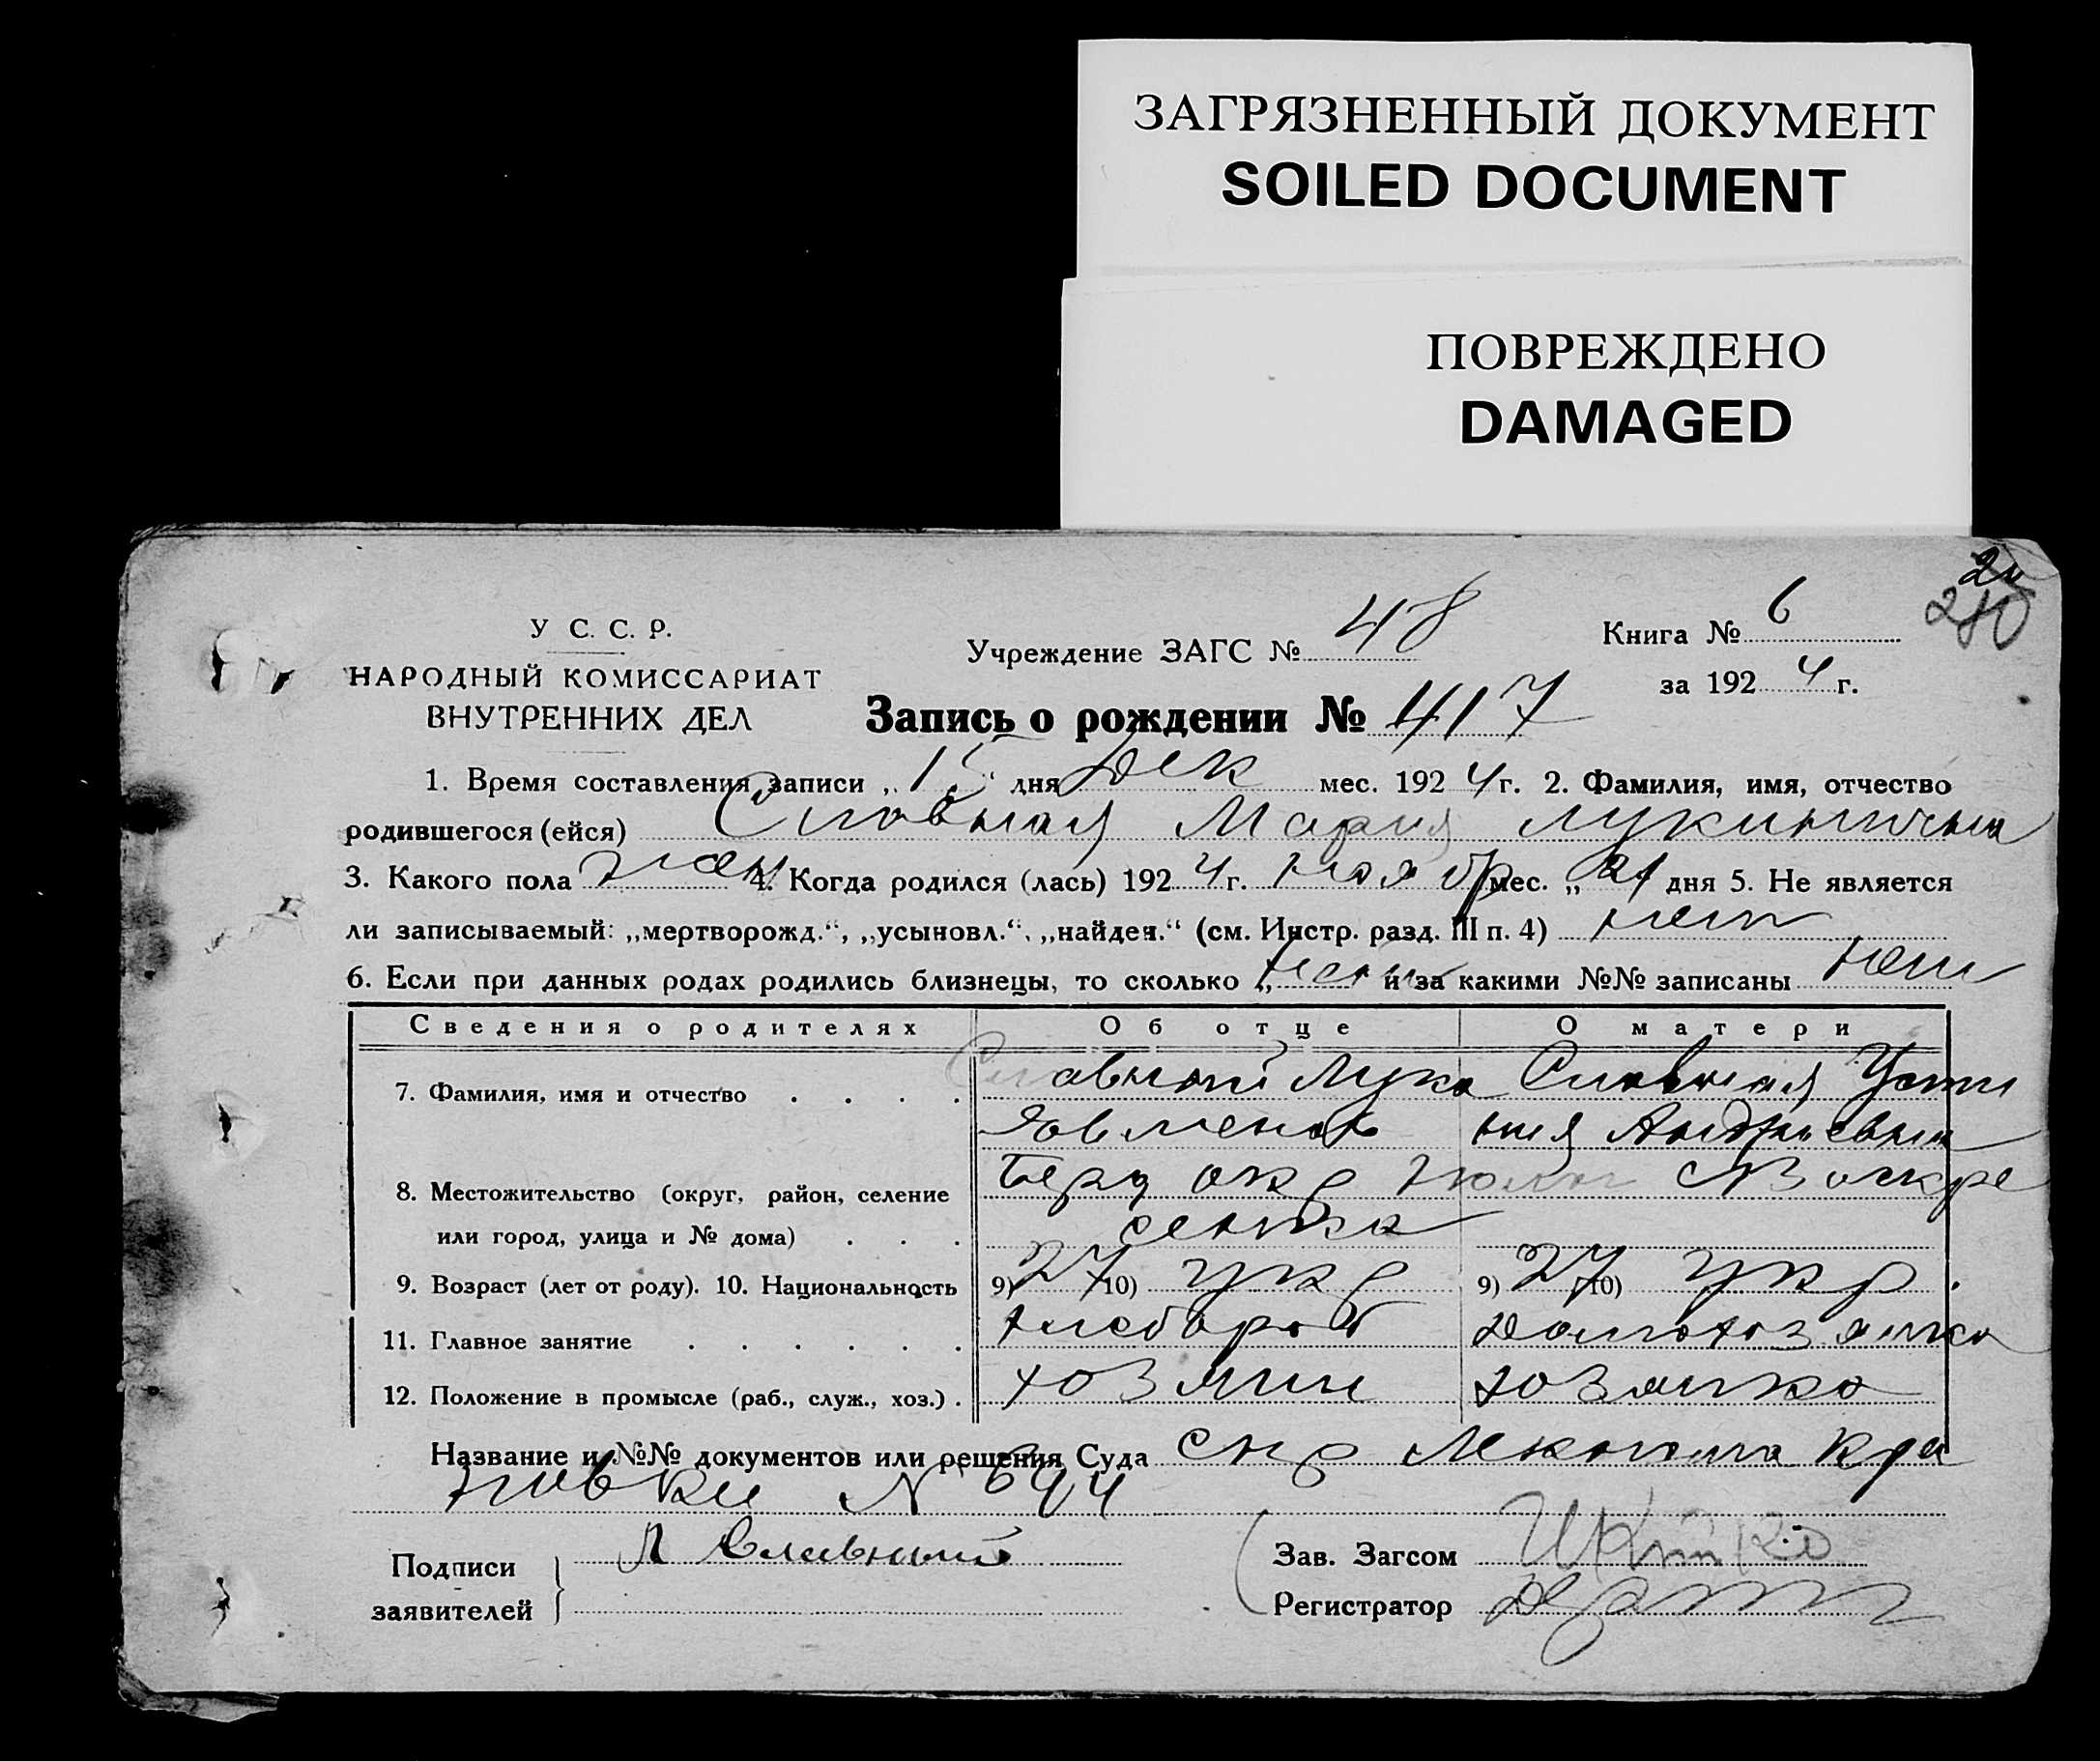 ЗАГРЯЗНЕННЫЙ ДОКУМЕНТ
SOILED DOCUMENT
ПОВРЕЖДЕНО
DAMAGED
У С. С. Р.
НАРОДНЫЙ КОМИССАРИАТ
ВНУТРЕННИХ ДЕЛ
Учреждение ЗАГС № 48
Книга № 6
за 1924 г.
Запись о рождении № 417
1. Время составления записи „ 15 " дня дек мес. 1924 г. 2. Фамилия, имя, отчество
родившегося (ейся) Славная Мария Лукинична
3. Какого пола жен 4. Когда родился (лась) 1924 г. ноябр мес. „ 21 дня 5. Не является
ли записываемый: „мертворожд.“, „усыновл.“, „найден.“ (см. Инстр. разд. III п. 4) нет
6. Если при данных родах родились близнецы, то сколько „ нет и за какими №№ записаны нет
Сведения о родителях Об отце О матери
7. Фамилия, имя и отчество . . . . Славный Лука Славная Усти
ния Андриевна
8. Местожительство (округ, район, селение Берд окр с Воскре
или город, улица и № дома) . . . сенка
9. Возраст (лет от роду). 10. Национальность 9) 27 10) укр 9) 27 10) укр.
11. Главное занятие . . . . . . хлебороб домохозяйка
12. Положение в промысле (раб., служ., хоз.) . хозяин хозяйка
Название и №№ документов или решения Суда спр
№ 644
Подписи
заявителей
Л Славный
Зав. Загсом
Регистратор